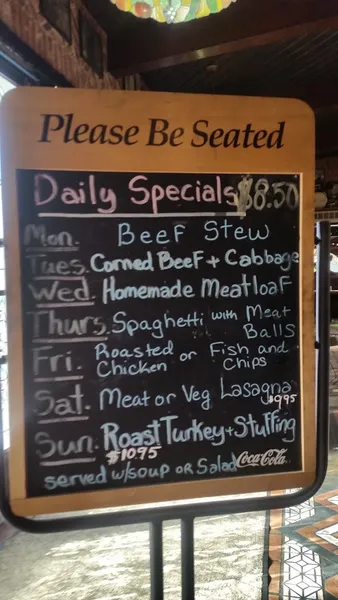 Please Be Seated
Daily Specials $8.50
Mon. Beef Stew
Tues. Corned Beef + Cabbage
Wed. Homemade Meatloaf
Thurs. Spaghetti with Meat Balls
Fri. Roasted Chicken or Fish and Chips
Sat. Meat or Veg Lasagna
$9.95
Sun. Roast Turkey + Stuffing
$10.95
served w/soup or Salad
Coca-Cola